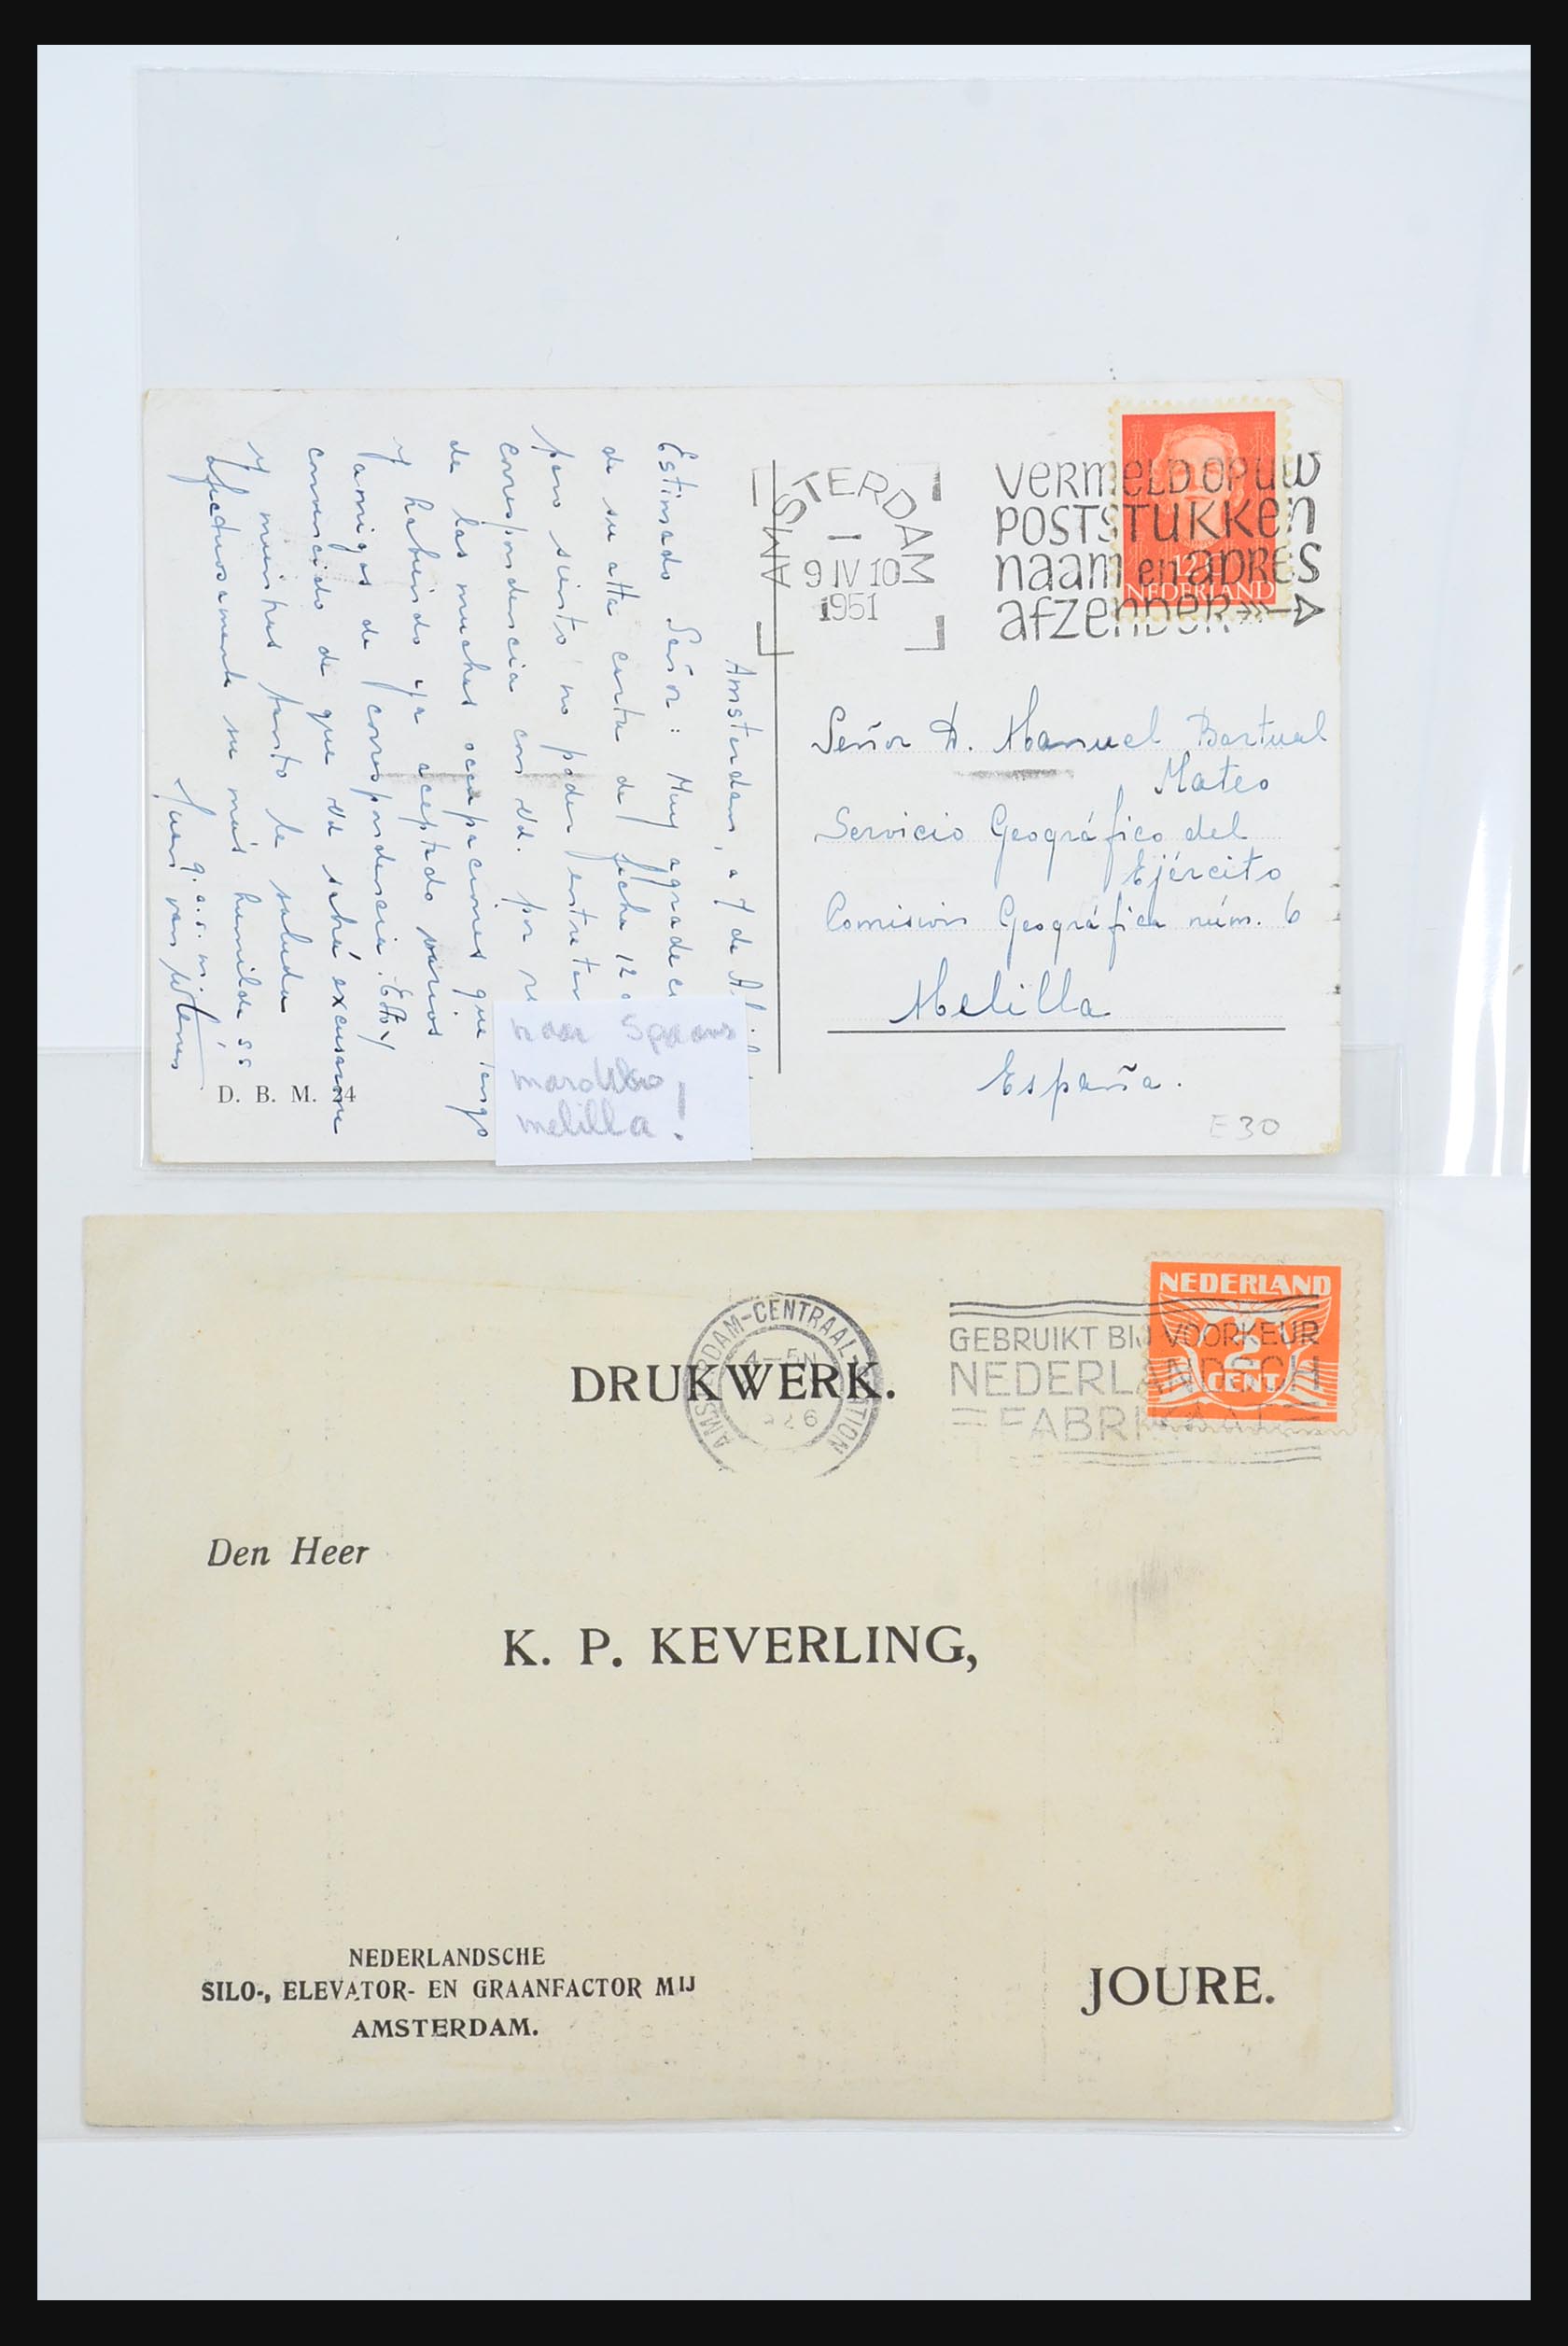 AMSTERDAM
9 IV 10
1951
VERMELD OP UW
POSTSTUKKEN
naam en ADRES
afZENDER
12 c
NEDERLAND
Amsterdam, a 7 de
Estimado Señor: Muy agradeci
de su atta carta de fecha 12
pero siento no poder entreten
correspondencia con Vd. por
de las muchas ocupaciones que tengo
y habiendo ya aceptado varios
amigos de correspondencia. Estoy
convencido de que Vd sabrá excusarme
y mientras tanto le saluda
afectuosamente su más humilde ss
q.e.s.m.
Juan van
D. B. M. 24
Señor D. Manuel Bartual
Mateo
Servicio Geográfico del
Ejército
Comisión Geográfica núm. 6
Melilla
España.
naar Spaans
marokko
melilla!
E 30
AMSTERDAM-CENTRAAL-STATION
4-5N
GEBRUIKT BIJ VOORKEUR
NEDERLANDSCH
FABRIKAAT
NEDERLAND
2
CENT
DRUKWERK.
Den Heer
K. P. KEVERLING,
NEDERLANDSCHE
SILO-, ELEVATOR- EN GRAANFACTOR MIJ
AMSTERDAM.
JOURE.